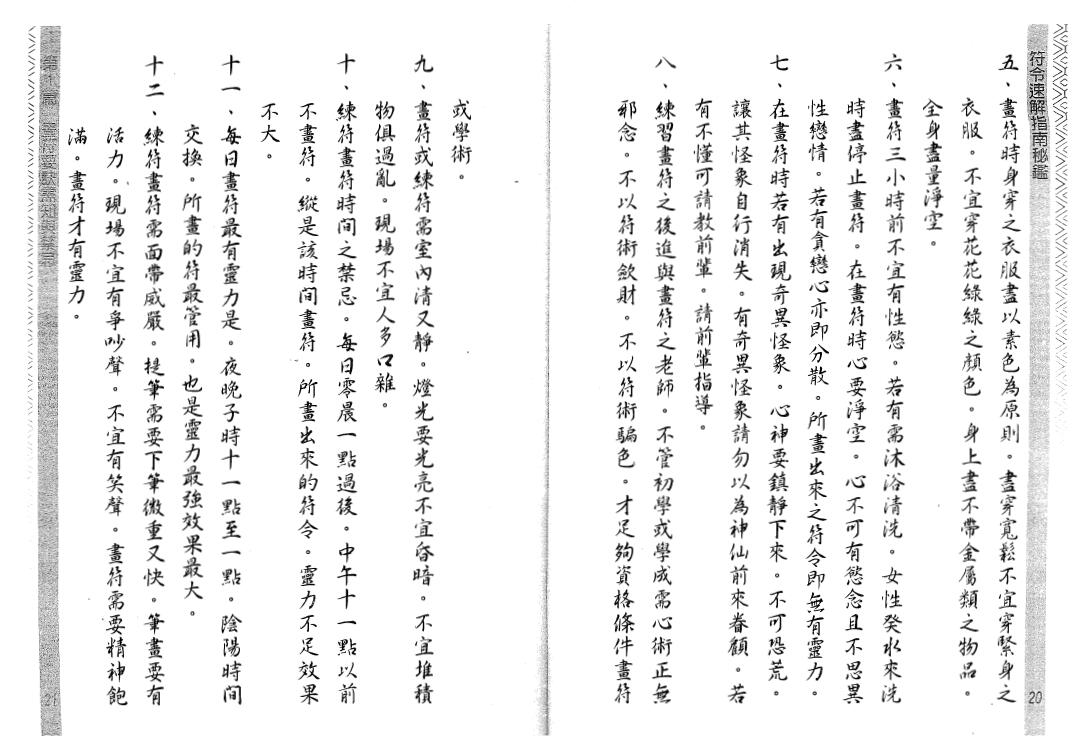 符令速解指南秘鑑
五、畫符時身穿之衣服盡以素色為原則。盡穿寬鬆不宜穿緊身之
衣服。不宜穿花花綠綠之顏色。身上盡不帶金屬類之物品。
全身盡量淨空。
六、畫符三小時前不宜有性慾。若有需沐浴清洗。女性癸水來洗
時盡停止畫符。在畫符時心要淨空。心不可有慾念且不思異
性戀情。若有貪戀心亦即分散。所畫出來之符令即無有靈力。
七、在畫符時若有出現奇異怪象。心神要鎮靜下來。不可恐荒。
讓其怪象自行消失。有奇異怪象請勿以為神仙前來眷顧。若
有不懂可請教前輩。請前輩指導。
八、練習畫符之後進與畫符之老師。不管初學或學成需心術正無
邪念。不以符術歛財。不以符術騙色。才足夠資格條件畫符
20
或學術。
九、畫符或練符需室內清又靜。燈光要光亮不宜昏暗。不宜堆積
物俱過亂。現場不宜人多口雜。
十、練符畫符時間之禁忌。每日零晨一點過後。中午十一點以前
不畫符。縱是該時間畫符。所畫出來的符令。靈力不足效果
不大。
十一、每日畫符最有靈力是。夜晚子時十一點至一點。陰陽時間
交換。所畫的符最管用。也是靈力最強效果最大。
十二、練符畫符需面帶威嚴。提筆需要下筆微重又快。筆畫要有
活力。現場不宜有爭吵聲。不宜有笑聲。畫符需要精神飽
滿。畫符才有靈力。
21